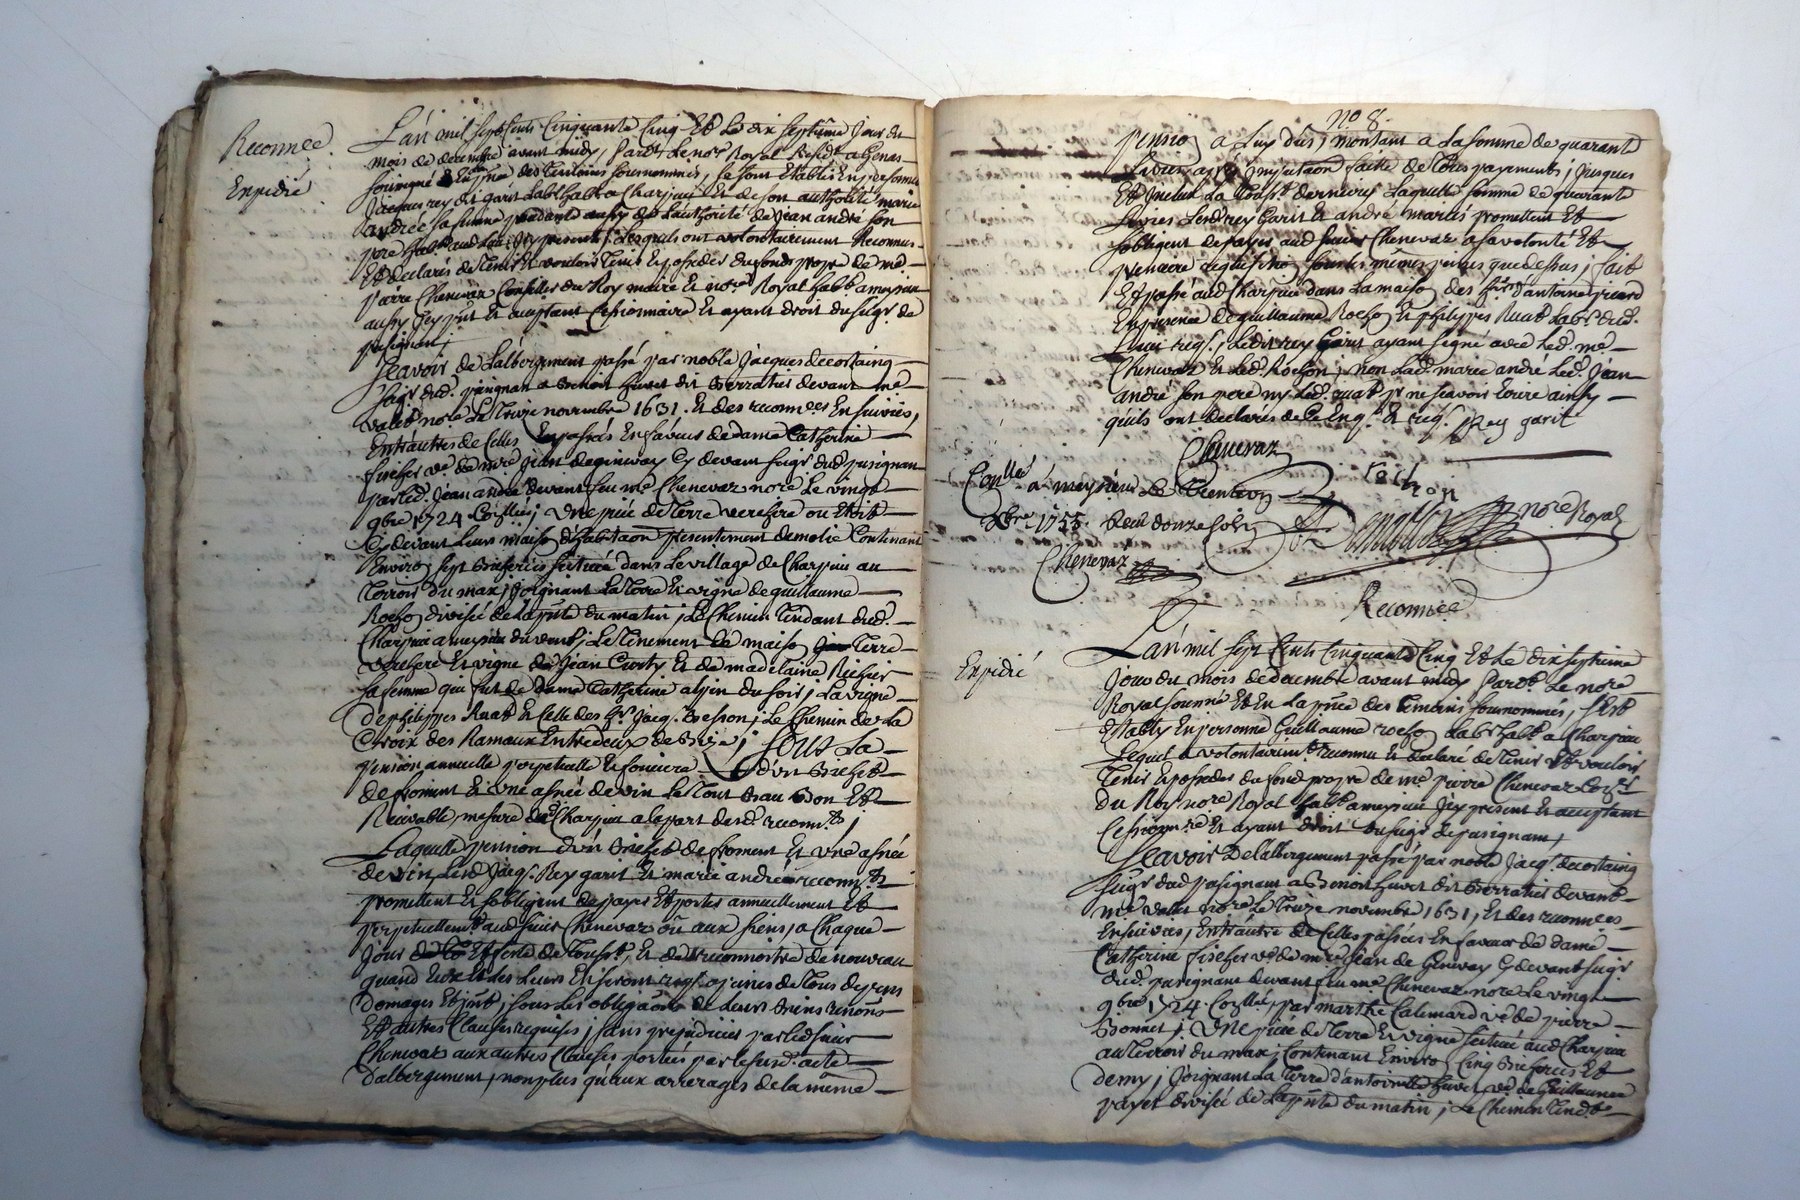 Reconnce
Expidié
L'an mil sept Cents Cinquante Cinq Et Le dix septième Jour du
mois de decembre avant midy, pardt Le nore Royal Resident a Genas
soussigné Et En pnce des temoins sousnommés, se sont Etablis En personne
Jacques rey dit garit Labr habt a Charpieu Et de son authorité marie
andrée sa femme procedante aussy de L'authorité de Jean andré son
pere habt aud Lieu Icy present; Lesquels ont volontairement Reconnus
Et declarés de Tenir Et vouloir Tenir Et posseder du fonds propre de me
pierre Chenevaz Conseiller du Roy maire Et nore Royal habt a meysieu
aussy Icy pnt Et acceptant Cessionnaire Et ayant droit du seigr de
pusignant;
Scavoir de L'albergement passé par noble Jacques decostaing
seigr dud. pusignan a Benoit huvet dit Serratier devant me
valet nore Le Treize novembre 1631. Et des reconnces En suivies,
Entr'autres de Celles En passées En faveur de dame Catherine
fischer ve de mre Jean de ginevay Cy devant seigr dud pusignan
par led. Jean andré devant feu me Chenevaz nore Le vingt
9bre 1724. Collée; une piece de Terre verchere ou Etoit
Cy devant Leur maison d'habitaon presentement demolie Contenant
Environ sept bicherées scituée dans Le village de Charpieu au
Terroir du max; Joignant La Terre Et vigne de guillaume
Rochon divisée de La pnte du matin; Le Chemin Tendant dud.
Charpieu a meysieu du vent; Le Tenement de maison Terre
verchere Et vigne de Jean Curty Et de madelaine Richier
sa femme qui fut de dame Catherine alpin du soir; La vigne
de philippes Ruat Et Celle des hrs Jacq. Besson; Le Chemin de La
Croix des Rameaux Entredeux de Bize; Sous La
pension annuelle perpetuelle Et fonciere d'un Bichet
de froment Et une asnée de vin Le Tout Beau Bon Et
Recevable, mesure de Charpieu a la part desd. reconnts;
Laquelle pension d'un Bichet de froment Et une asnée
de vin Lesd Jacq. Rey garit Et marie andrée reconnts
promettent Et s'obligent de payer Et porter annuellement Et
perpetuellemt aud sieur Chenevaz ou aux siens, a Chaque
Jour Et feste de Toussts, Et de reconnoistre de nouveau
quand Eux Et Les Leurs En seront req. a peines de Tous depens
domages Et Ints, sous Les obligaons de Leurs Biens renons
Et autres Clauses requises; sans prejudicier par led sieur
Chenevaz aux autres Clauses portées par le susd. acte
d'albergement, non plus qu'aux arrerages de la même
no 8.
pension a Luy dus, montant a La somme de quarante
Livres apres Imputaon faite de Tous payements, Jusques
Et Inclus La Tousst. derniere, Laquelle somme de quarante
Livres Lesd rey garit Et andrée mariés promettent Et
s'obligent de payer aud sieur Chenevaz a sa volonté Et
premiere requisition, sous Les memes peines que dessus; fait
Et passé aud Charpieu dans La maison des hrs d'antoine picard
En presence de guillaume Rochon Et philippes Ruat Labrs dud.
Lieu reqs.; Ledit rey Garit ayant signé avec Led. me
Chenevaz Et Led. Rochon; non Lad. marie andrée Led. Jean
andré son pere ny Led. ruat pr ne scavoir Ecrire ainsy
qu'ils ont declarés de Ce Enqs. Et reqs. Rey garit
Chenevaz
rochon
Conllé á meysieu Le Trente un
Xbre 1755. Recu douze sols
nore Royal
Chenevaz
Reconnce
Expidié
L'an mil sept Cents Cinquante Cinq Et Le dix septieme
Jour du mois de decembre avant midy pardt. Le nore
Royal soussné Et En La pnce des temoins sousnommés, s'est
Etably En personne Guillaume rochon Labr habt a Charpieu
Lequel a volontairemt reconnu Et declaré de Tenir Et vouloir
Tenir Et posseder du fond propre de me pierre Chenevaz Coner
du Roy nore Royal habt a meysieu Icy present Et acceptant
Cessionnre Et ayant droit du seigr de pusignant,
Scavoir De L'albergement passé par noble Jacq. decostaing
seigr dud pusignant a Benoit huvet dit Serratier devant
me valet nore Le Treize novembre 1631, Et des reconnces
Ensuivies, Entr'autre de Celles passées En faveur de dame
Catherine fischer ve de mre Jean de Ginevay Cy devant seigr
dud. pusignant devant feu me Chenevaz nore Le vingt
9bre 1724. Collée, par marthe Calemard ve de pierre
Bonnet; une piece de Terre Et vigne scituée aud Charpieu
au Terroir du max; Contenant Environ Cinq Bicherées Et
demy; Joignant La Terre d'antoinette huvet ve de Guillaume
payet divisée de La pnte du matin; Le Chemin Tendt